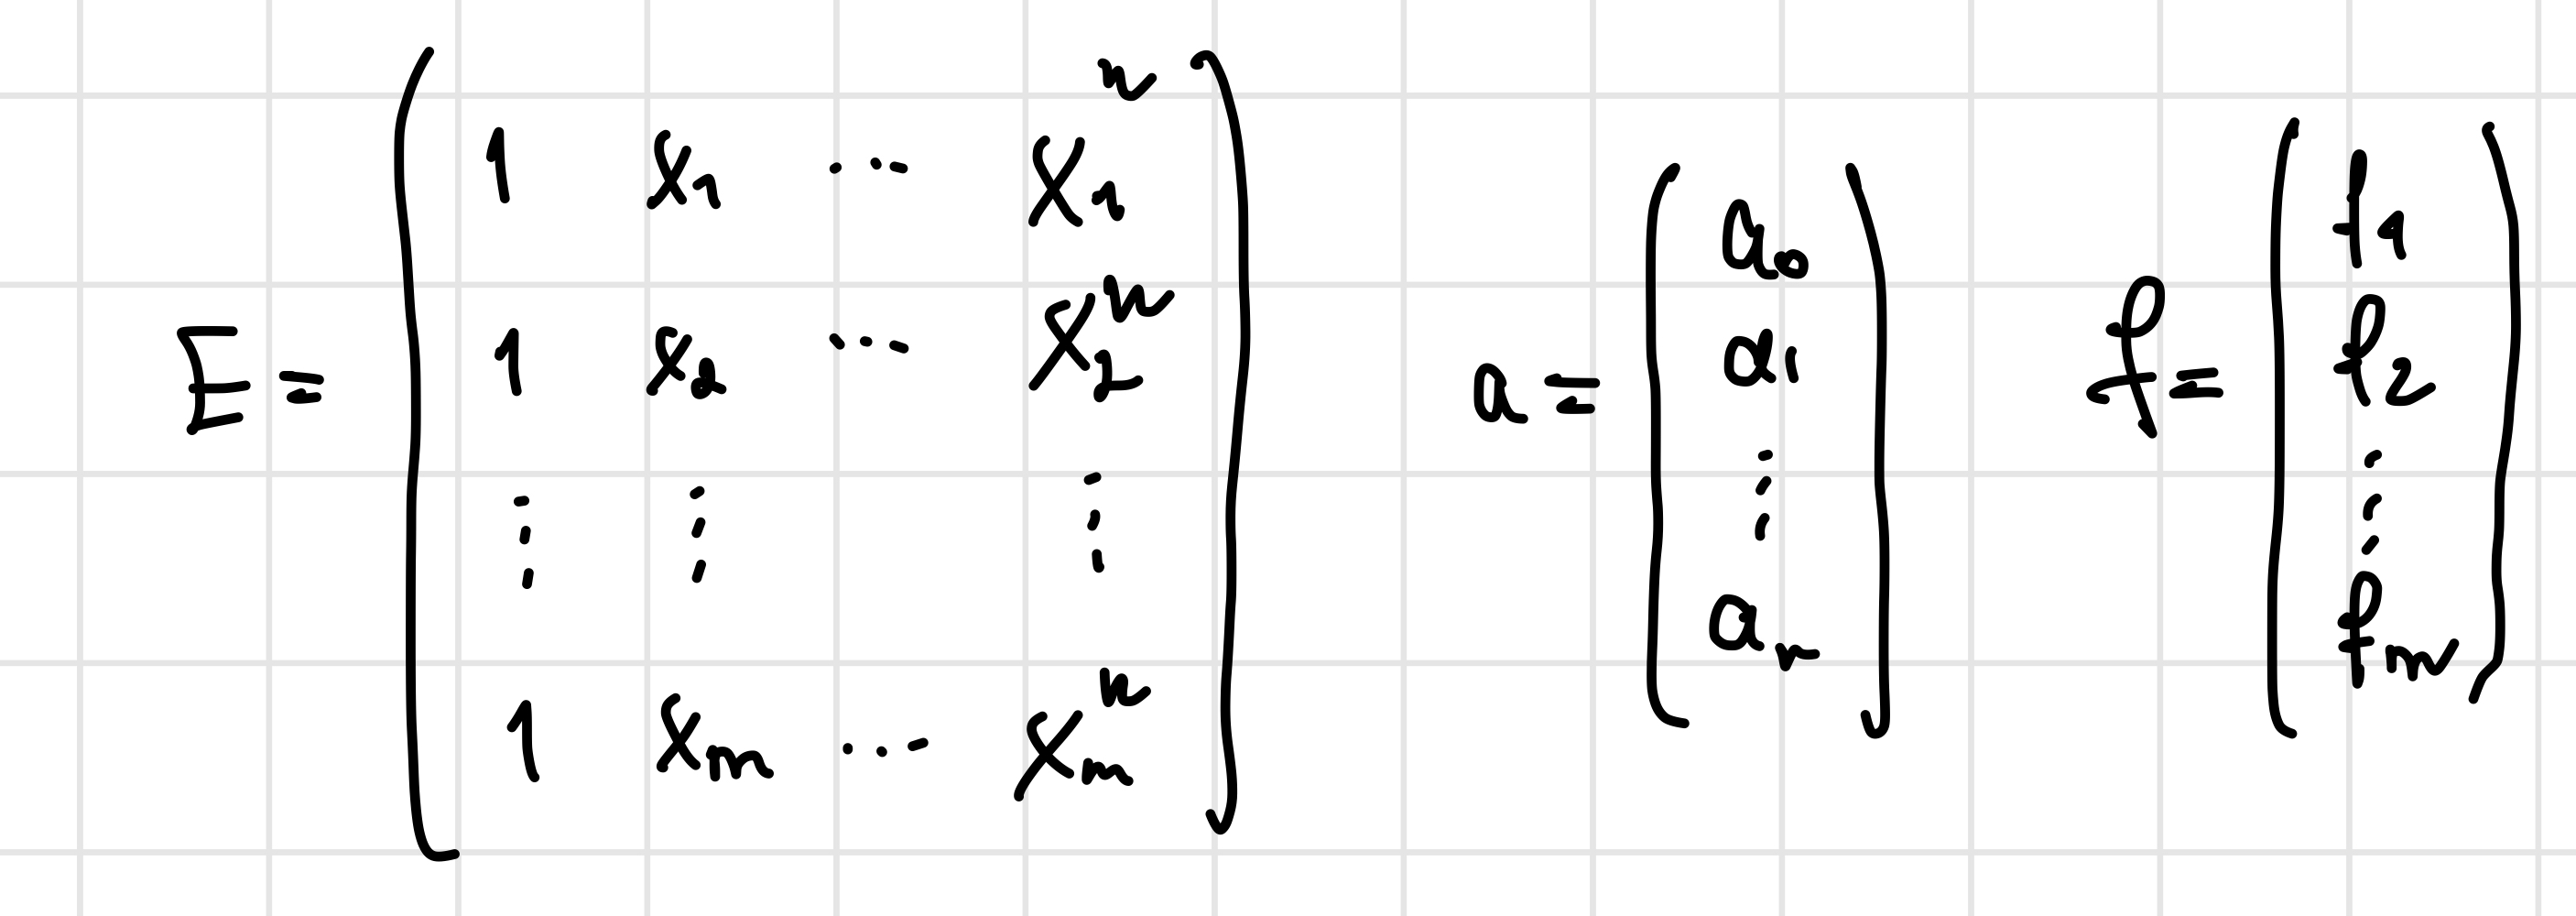 E = ( 1 x₁ ⋯ x₁ⁿ
1 x₂ ⋯ x₂ⁿ
⋮ ⋮ ⋮
1 xₘ ⋯ xₘⁿ )
a = ( a₀
a₁
⋮
aₙ )
f = ( f₁
f₂
⋮
fₘ )